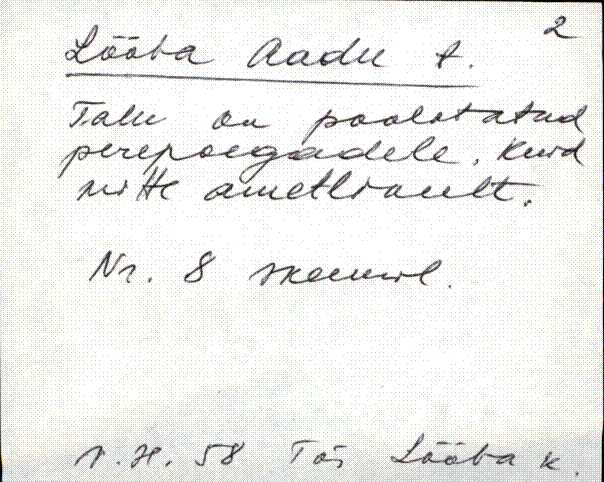 2
Lööba Aadu t.
Talu on poolitatud
perepoegadele, kuid
mitte ametlikult.
Nr. 8 skeemil.
V.H. 58 Tõs Lööba k.